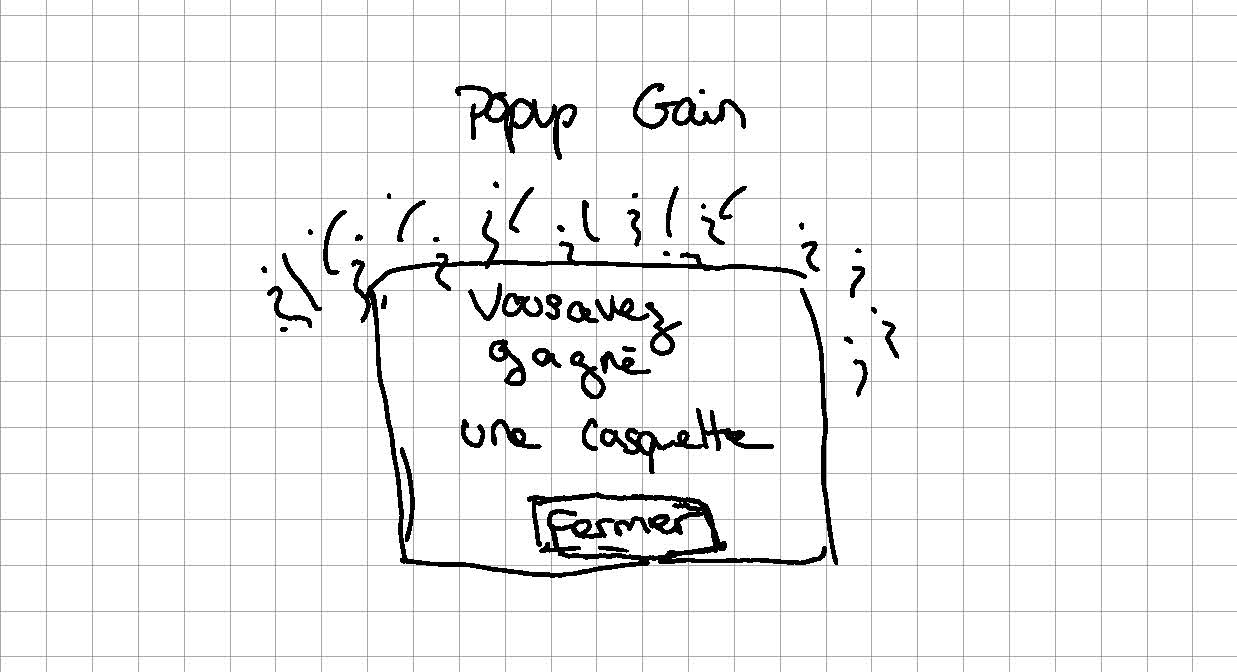 Popup Gain
Vous avez
gagné
une casquette
Fermer